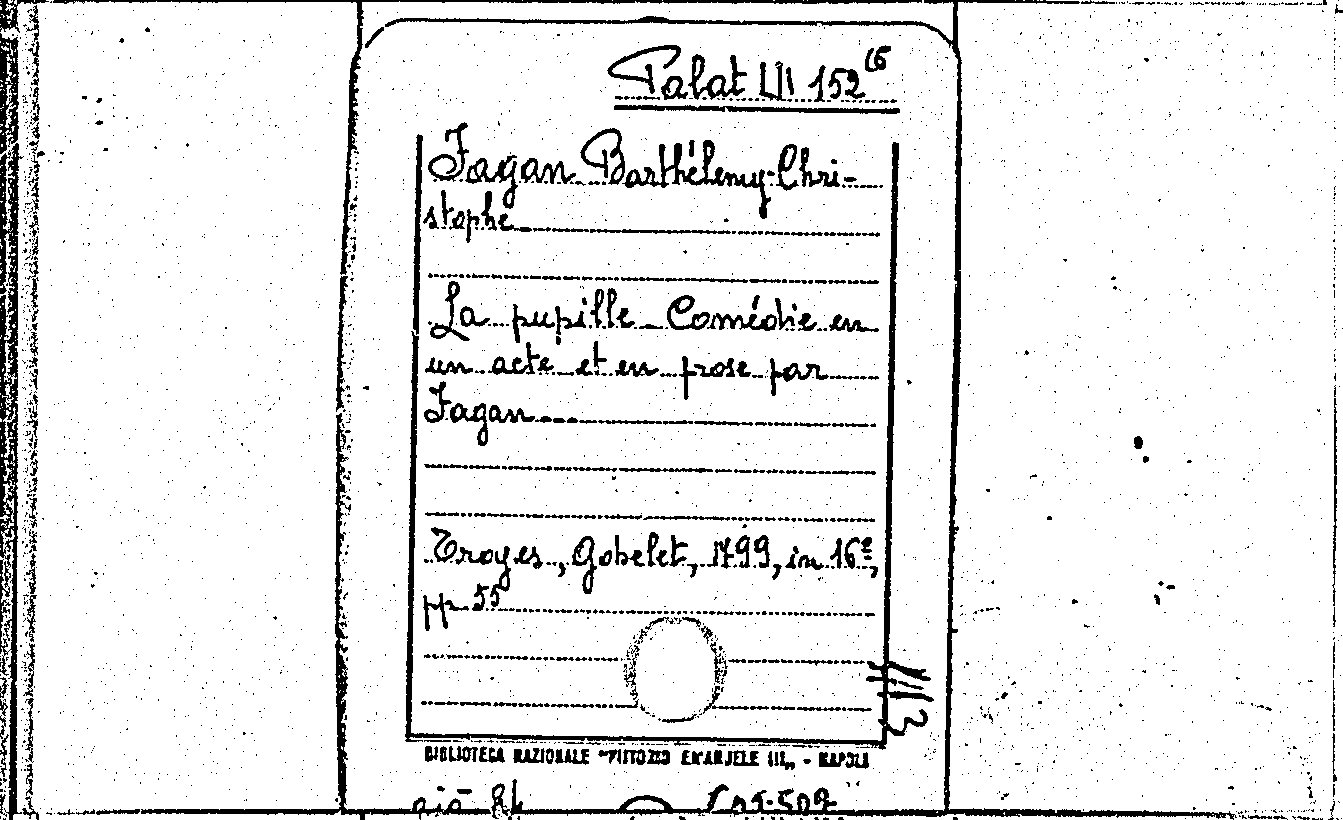 Palat LII 152⁽⁶
Fagan Barthélemy-Chri-
stophe
La pupille. Comédie en
un acte et en prose par
Fagan...
Troyes, Gobelet, 1799, in 16º,
pp. 55
BIBLIOTECA NAZIONALE "VITTORIO EMANUELE III„ - NAPOLI
già